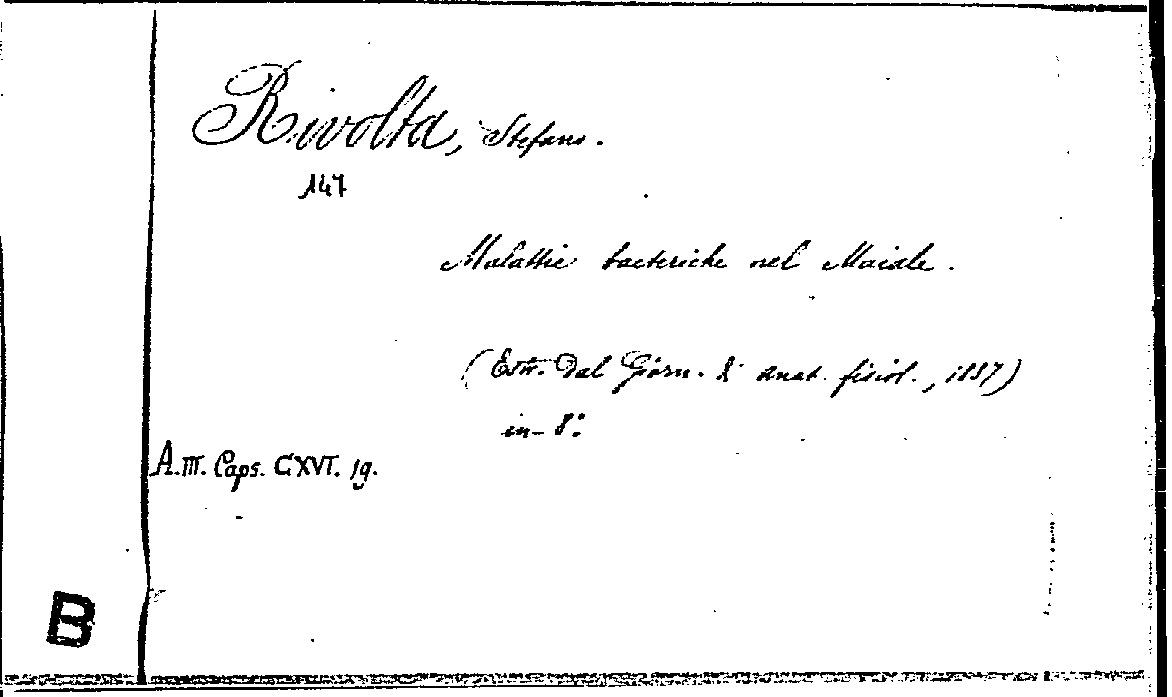 Rivolta, Stefano.
147
Malattie bacteriche nel Maiale.
(Estr. dal Giorn. di anat. fisiol., 1887)
in-8:
A.III. Caps. CXVI. 19.
B